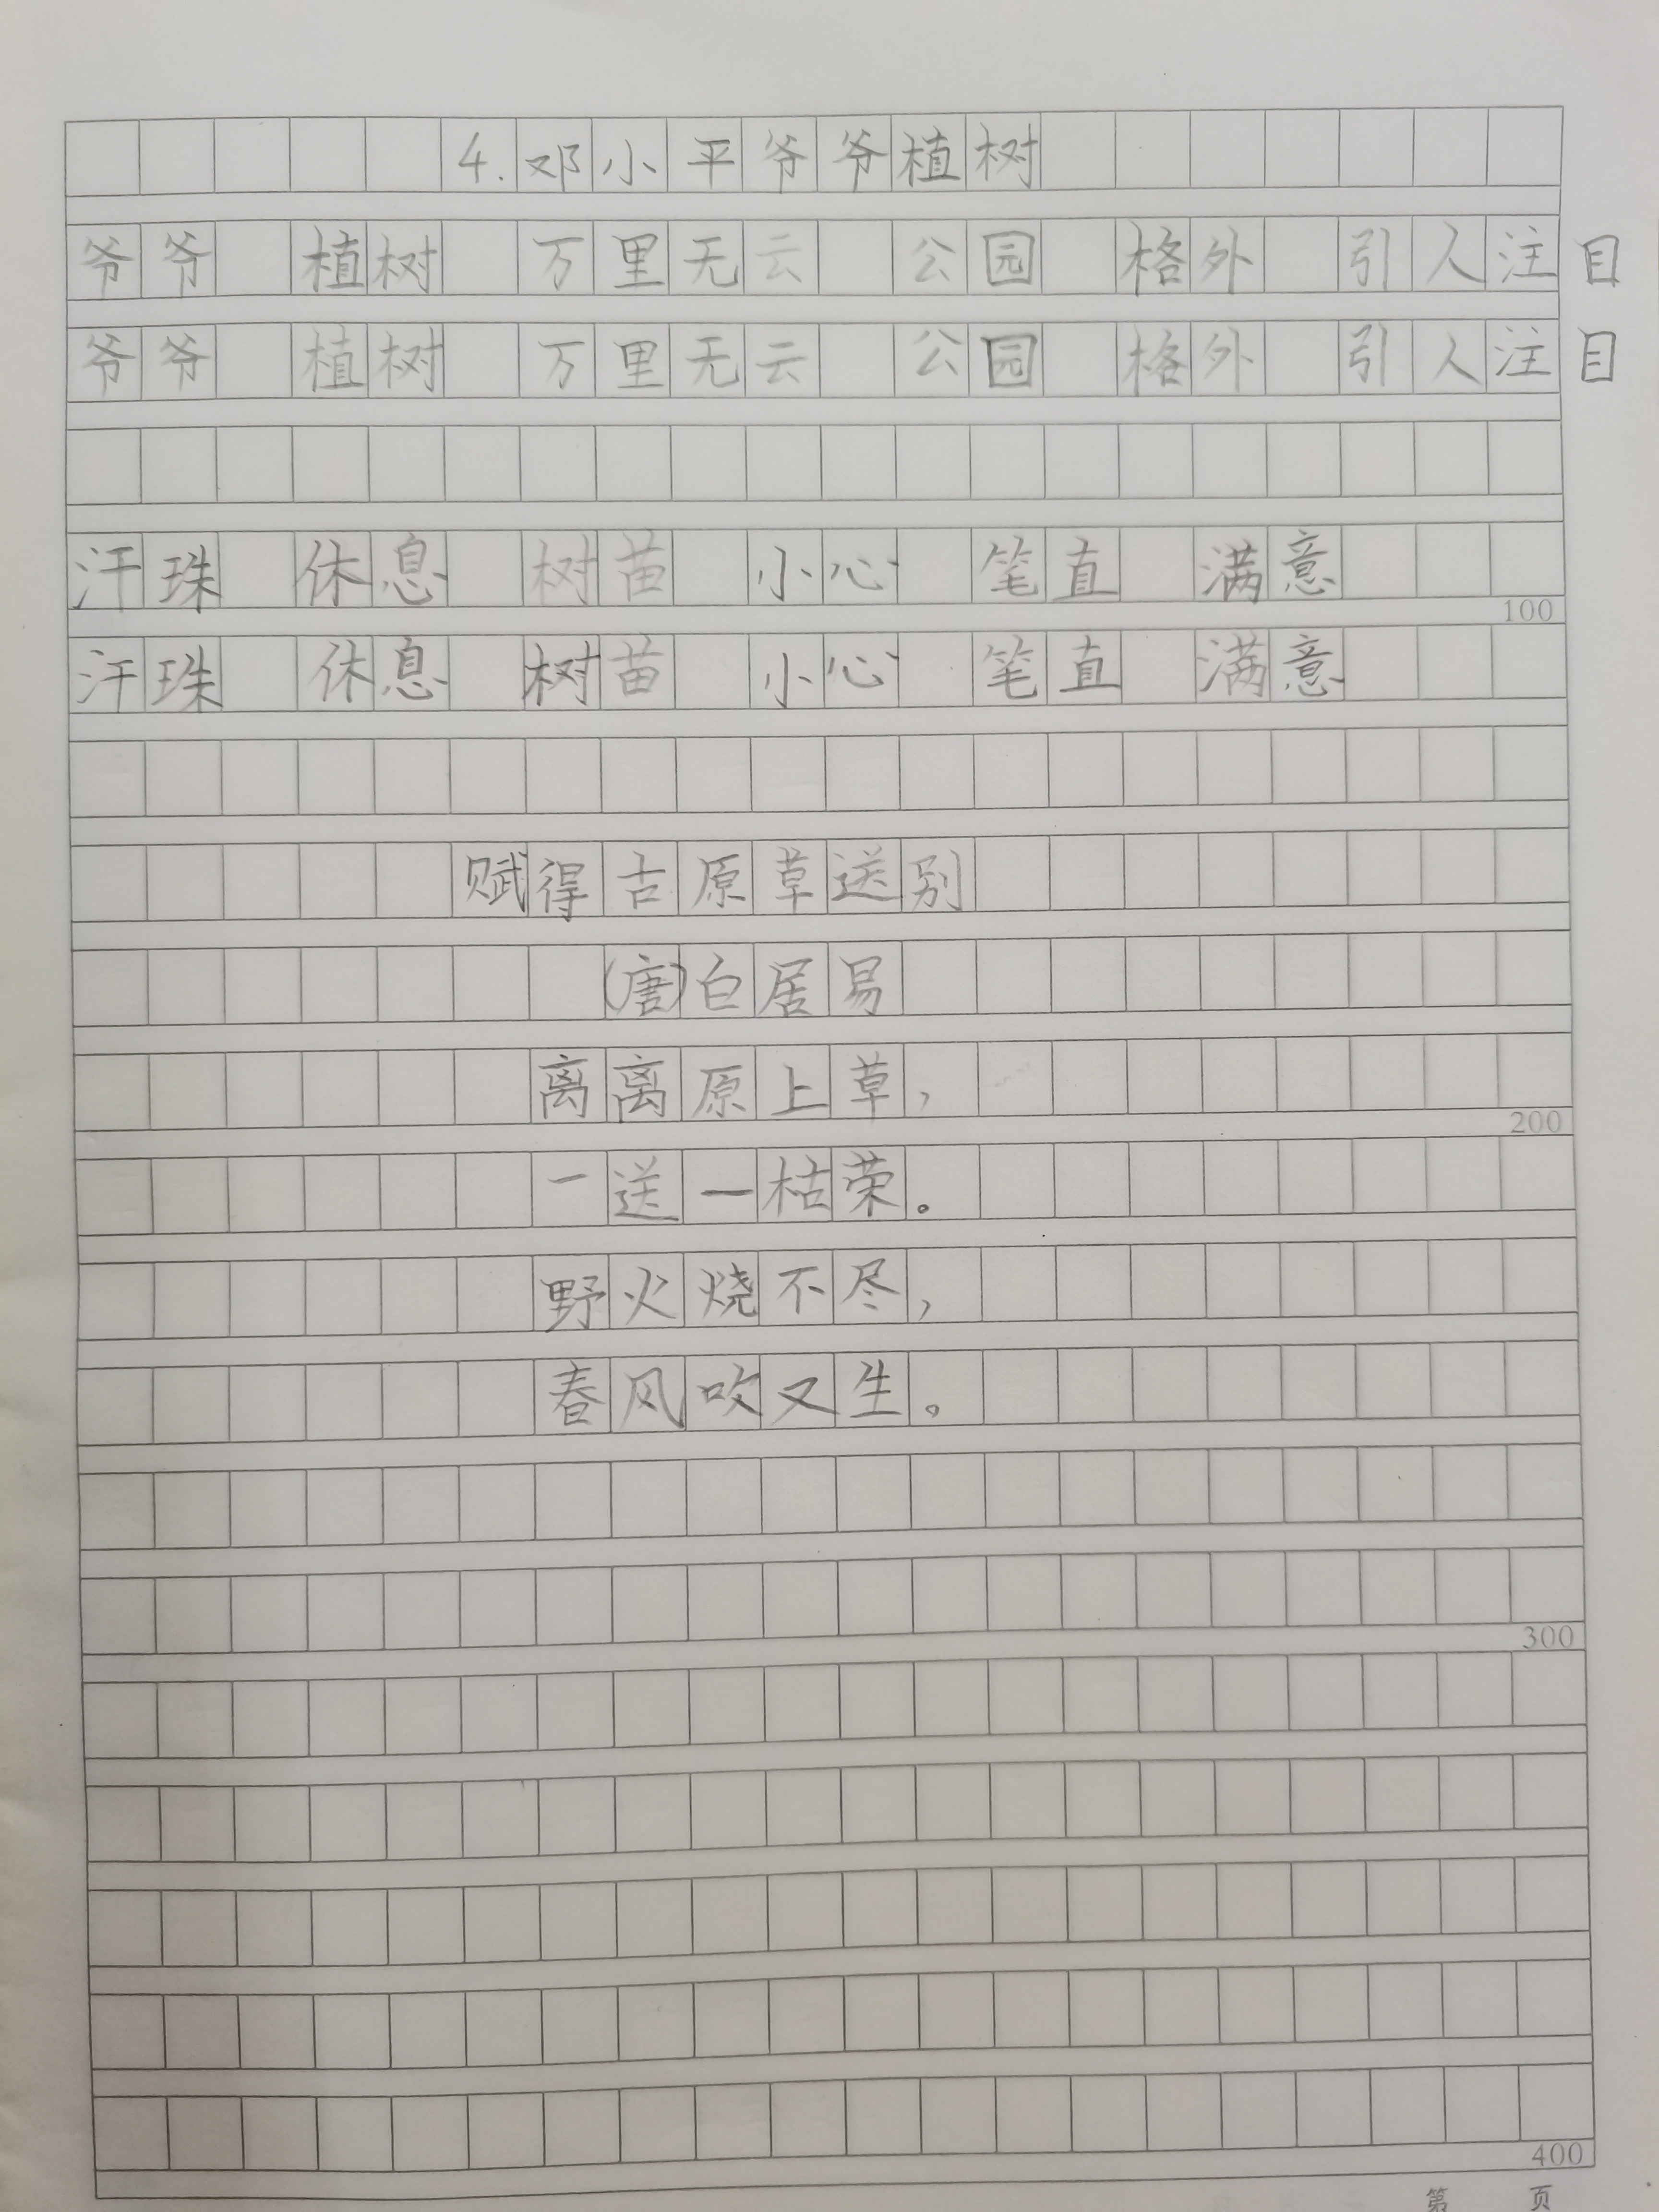 4.邓小平爷爷植树
爷爷 植树 万里无云 公园 格外 引人注目
爷爷 植树 万里无云 公园 格外 引人注目
汗珠 休息 树苗 小心 笔直 满意
100
汗珠 休息 树苗 小心 笔直 满意
赋得古原草送别
(唐)白居易
离离原上草,
200
一送一枯荣。
野火烧不尽,
春风吹又生。
300
400
第 页